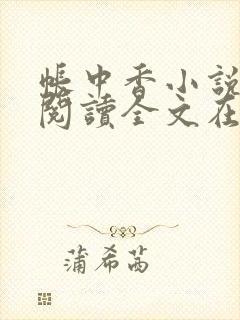 帳中香小說
閱讀全文在
蒲希茜